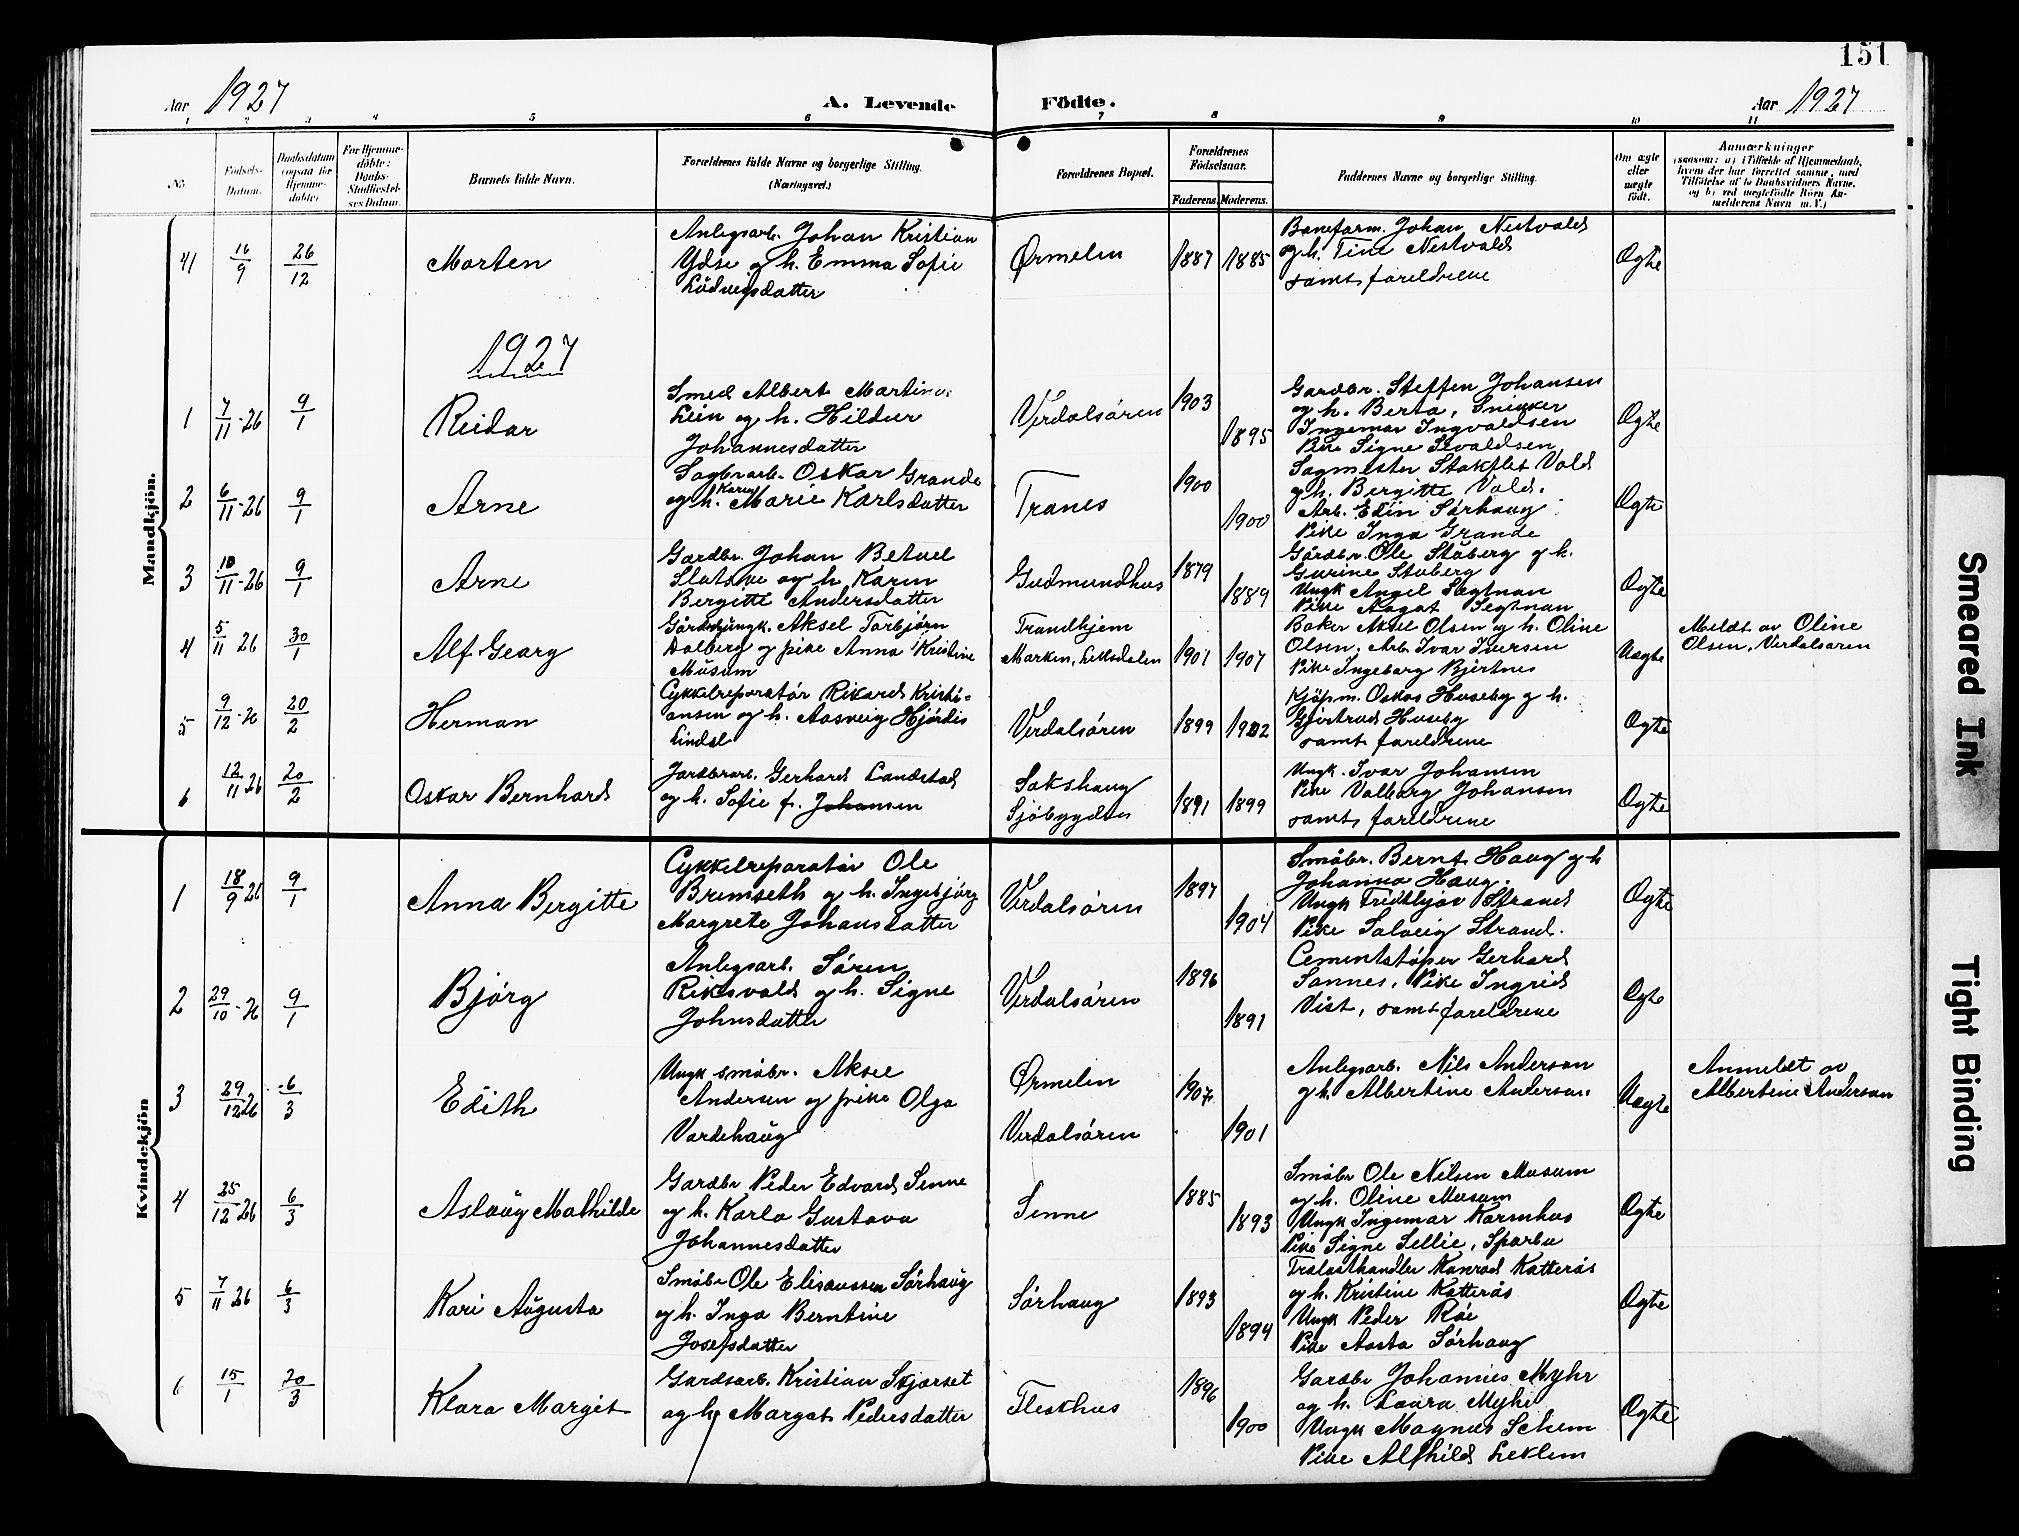 151
Aar 1927 A. Levende Födte. Aar 1927
1 2 3 4 5 6 7 8 9 10 11
No. Födsels-Datum. Daabsdatum (ogsaa for Hjemmedöbte) For Hjemmedöbte: Daabs-Stadfæstelses Datum. Barnets fulde Navn. Forældrenes fulde Navne og borgerlige Stilling. (Næringsvei.) Forældrenes Bopæl. Forældrenes Födselsaar. Faderens. Moderens. Faddernes Navne og borgerlige Stilling. Om ægte eller uægte födt. Anmærkninger (saasom: a) i Tilfælde af Hjemmedaab, hvem der har forrettet samme, med Tilföielse af to Daabsvidners Navne, og b) ved uægtefödte Börn Anmelderens Navn m. V.)
Mandkjön.
41 16/9 26/12 Morten Anlegsarb. Johan Kristian Ydse og h. Emma Sofie Ludvigsdatter Ørmelen 1887 1885 Baneform. Johan Nestvold og h. Tine Nestvold samt foreldrene Ægte
1927
1 7/11-26 9/1 Reidar Smed Albert Martin Lein og h. Hildur Johannesdatter Verdalsøren 1903 1895 Gardbr. Steffen Johansen og h. Berta, Snikker Ingemar Ingvaldsen Pike Signe Sivaldsen Ægte
2 6/11-26 9/1 Arne Sagbrarb. Oskar Grande og h. Karen Marie Karlsdatter Tranes 1900 1900 Sagmester Stokflet Vold og h. Bergitte Vold. Arb. Edin Sørhaug Pike Inga Grande Ægte
3 10/11-26 9/1 Arne Gardbr. Johan Betuel Slotsve og h. Karen Bergitte Andersdatter Gudmundhus 1879 1889 Gårdbr. Ole Stuberg og h. Gurine Stuberg Ungk Angel Segtnan Pike Aagot Segtnan Ægte
4 5/11 26 30/1 Alf Georg Gårdbrungk. Aksel Torbjørn Dalberg og pike Anna Kristine Musum Trondhjem Marken, Leksdalen 1901 1907 Baker Aksel Olsen og h. Oline Olsen, Arb. Ivar Iversen Pike Ingeborg Bjertnes Uægte Meldt av Oline Olsen, Verdalsøren
5 9/12-26 20/2 Herman Cykkelreparatør Rikard Kristiansen og h. Aasveig Hjørdis Lindal Verdalsøren 1899 1902 Kjøpm. Oskar Huseby og h. Gjertrud Huseby samt foreldrene Ægte
6 12/11 26 20/2 Oskar Bernhard Jordbrarb. Gerhard Landstad og h. Sofie f. Johansen Sakshaug Sjøbygden 1891 1899 Ungk. Ivar Johansen Pike Valborg Johansen samt foreldrene Ægte
Kvindekjön
1 18/9 26 9/1 Anna Bergitte Cykkelreparatør Ole Bremseth og h. Ingebjørg Margrete Johansdatter Verdalsøren 1897 1904 Småbr. Bernt Haug og h Johanna Haug. Ungk Fridthjov Strand Pike Solveig Strand. Ægte
2 29/10-26 9/1 Bjørg Anlegsarb. Søren Riksvold og h. Signe Johnsdatter Verdalsøren 1896 1891 Cementstøper Gerhard Sannes, Pike Ingrid Vist, samt foreldrene Ægte
3 29/12 26 6/3 Edith Ungk småbr. Aksel Andersen og pike Olga Vardehaug Ørmelen Verdalsøren 1907 1901 Anlegsarb. Nils Anderson og h. Albertine Anderson. Uægte Anmeldt av Albertine Anderson
4 25/12-26 6/3 Aslaug Mathilde Gardbr Peder Edvard Senne og h. Karla Gustava Johannesdatter Senne 1885 1893 Småbr Ole Nilsen Musum og h. Oline Musum Ungk Ingemar Karmhus Pike Signe Sellie, Sparbu Ægte
5 7/11 26 6/3 Kari Augusta Småbr Ole Eliseussen Sørhaug og h. Inga Berntine Josefsdatter Sørhaug 1893 1894 Trelasthandler Konrad Kotterås og h. Kristine Kotterås Ungk Peder Røe Pike Aasta Sørhaug Ægte
6 15/1 20/3 Klara Margit Gardsarb. Kristian Skjørset og h. Margot Pedersdatter Fleskhus 1896 1900 Gardbr Johannes Myhr og h. Laura Myhr Ungk Magnus Schem Pike Alfhild Leklem Ægte
Smeared Ink
Tight Binding